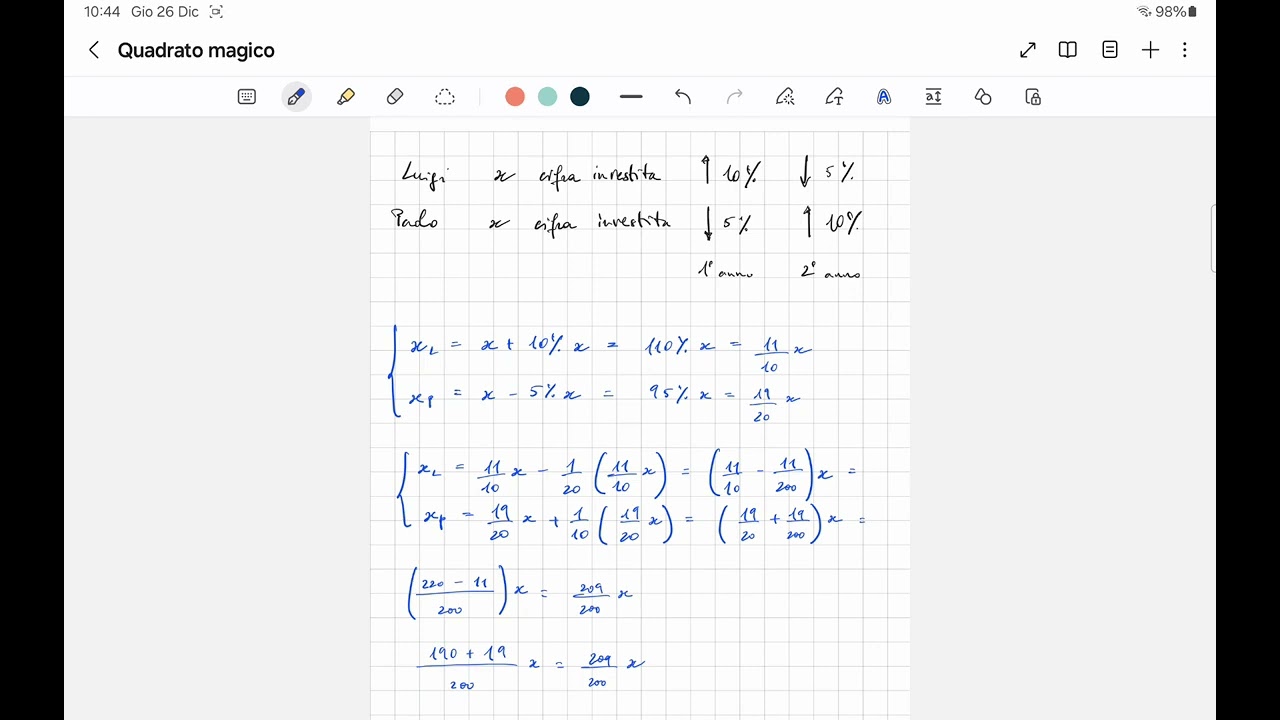 10:44 Gio 26 Dic 98%
Quadrato magico
Luigi x cifra investita ↑ 10% ↓ 5%
Paolo x cifra investita ↓ 5% ↑ 10%
1° anno 2° anno
x_L = x + 10% x = 110% x = 11/10 x
x_P = x - 5% x = 95% x = 19/20 x
x_L = 11/10 x - 1/20 (11/10 x) = (11/10 - 11/200) x =
x_P = 19/20 x + 1/10 (19/20 x) = (19/20 + 19/200) x =
((220 - 11)/200) x = 209/200 x
(190 + 19)/200 x = 209/200 x